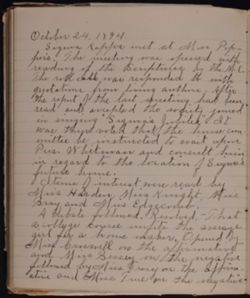 October 24, 1894
Sigma Kappa met at Miss Pep-
per's. The meeting was opened with
reading of the Scriptures by the
The roll call was responded to with
quotations from living authors. After
the report of the last meeting had been
read and accepted the society joined
in singing Sigma's Jubilee. It
was then voted that the house com-
mittee be instructed to wait upon
Pres Whitman and consult him
in regard to the location of Sigma's
future home.
Items of interest were read by
Miss Hardin, Miss Knight, Miss
Bray and Miss Edgecomb.
A debate followed, Resolved, That
a college course unfits the average
girl for a home maker. Opened by
Miss on the affirmative
and Miss on the negative
followed by Miss on the affirma-
tive and Miss True on the negative